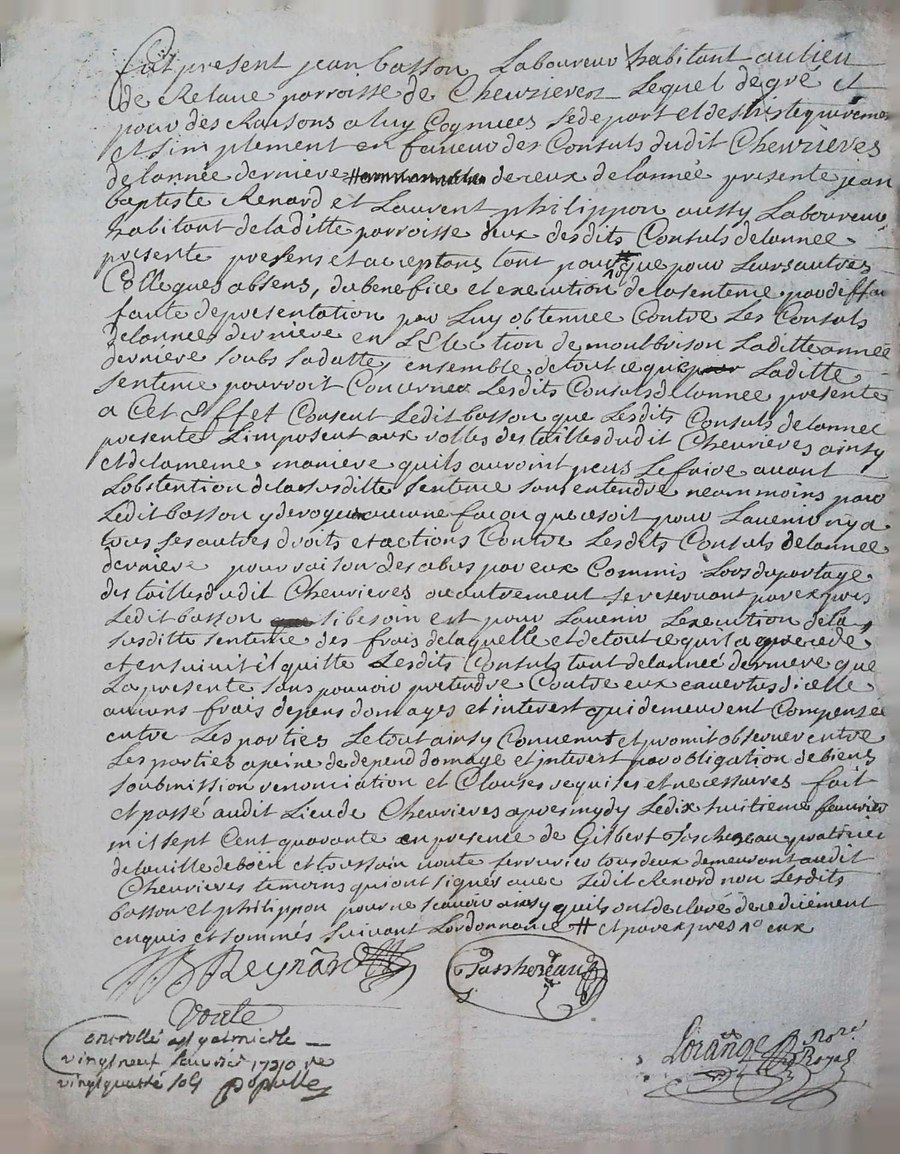 Fut present jean basson Laboureur habitant au lieu
de Relave parroisse de Chevrieres Lequel de gré et
pour des Raisons a luy Cognuees se depart et desiste purement
et simplement en faveur des Consuls dudit Chevrieres
de lannée derniere de ceux de lannée presente jean
baptiste Renard et Laurent philippon aussy Laboureurs
habitant de laditte parroisse deux desdits Consuls de lannee
presente presens et acceptans tant pour # que pour Leurs autres
Collegues absens, du benefice et execution de la sentence par deffau
faute de presentation par Luy obtenuee Contre Les Consuls
de lannee derniere en LElection de montbrison Laditte année
derniere soubs sa datte, ensemble de tout ce que Laditte
sentence pourroit Concerner Lesdits Consuls de lannee presente
a Cet Effet Consent Ledit basson que Lesdits Consuls de lannee
presente Limposent aux rolles des tailles dudit Chevrieres ainsy
et de la meme maniere quils auroint peus Le faire avant
Lobstention de la susditte sentence sans entendre neanmoins par
Ledit basson y deroger aucune façon que ce soit pour Lavenir ny a
tous ses autres droits et actions Contre Lesdits Consuls de lannee
derniere pour raison des abus par eux Commis Lors du portage
des tailles dudit Chevrieres ou autrement se reservant par expres
Ledit basson si besoin est pour Lavenir Lexecution de la
susditte sentence des frais de laquelle et de tout ce qui la precedé
et ensuivit il quitte Lesdits Consuls tant de lanneé derniere que
La presente sans pouvoir pretendre Contre eux en vertu dicelle
aucuns frais depens domages et interest qui demeurent Compensé
entre Les parties Le tout ainsy Convenu et promit observer entre
Les parties a peine de depend domage et interest par obligation de biens
soubmission renonciation et Clauses requises et necessaires fait
et passé audit Lieu de Chevrieres apres mydy Le dix huitieme feuvrier
mil sept Cent quarante en presence de Gilbert praticien
de la ville de boën et toussain voute serrurier tous deux demeurant audit
Chevrieres temoins qui ont signés avec Ledit Renard non Lesdits
basson et philippon pour ne scavoir ainsy quils ont declaré de ce duement
enquis et sommés suivant Lordonnance # et par expres eux
Reynard
Voute
Controllé a St galmier le
vingt neuf feuvrier 1740 re
vingt quatre sols
Lorange Nore Royal